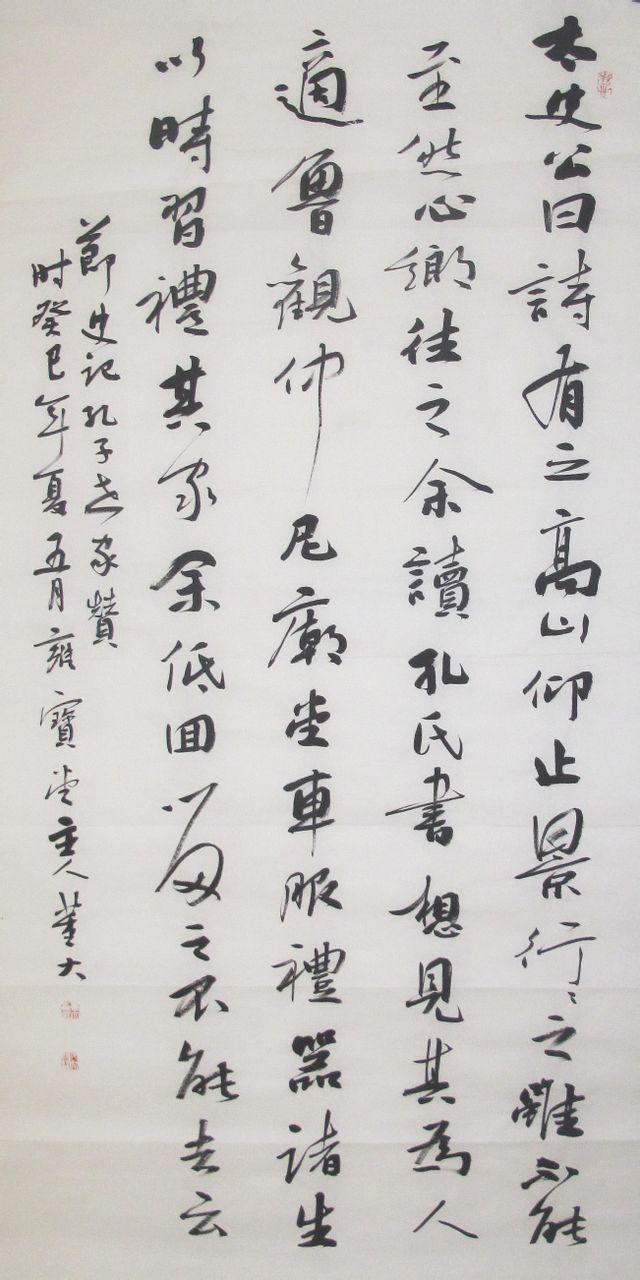 太史公曰詩有之高山仰止景行行之雖不能
至然心鄉往之余讀孔氏書想見其為人
適魯觀仲尼廟堂車服禮器諸生
以時習禮其家余低回留之不能去云
節史記孔子世家贊
时癸巳年夏五月雍寶堂主人董大